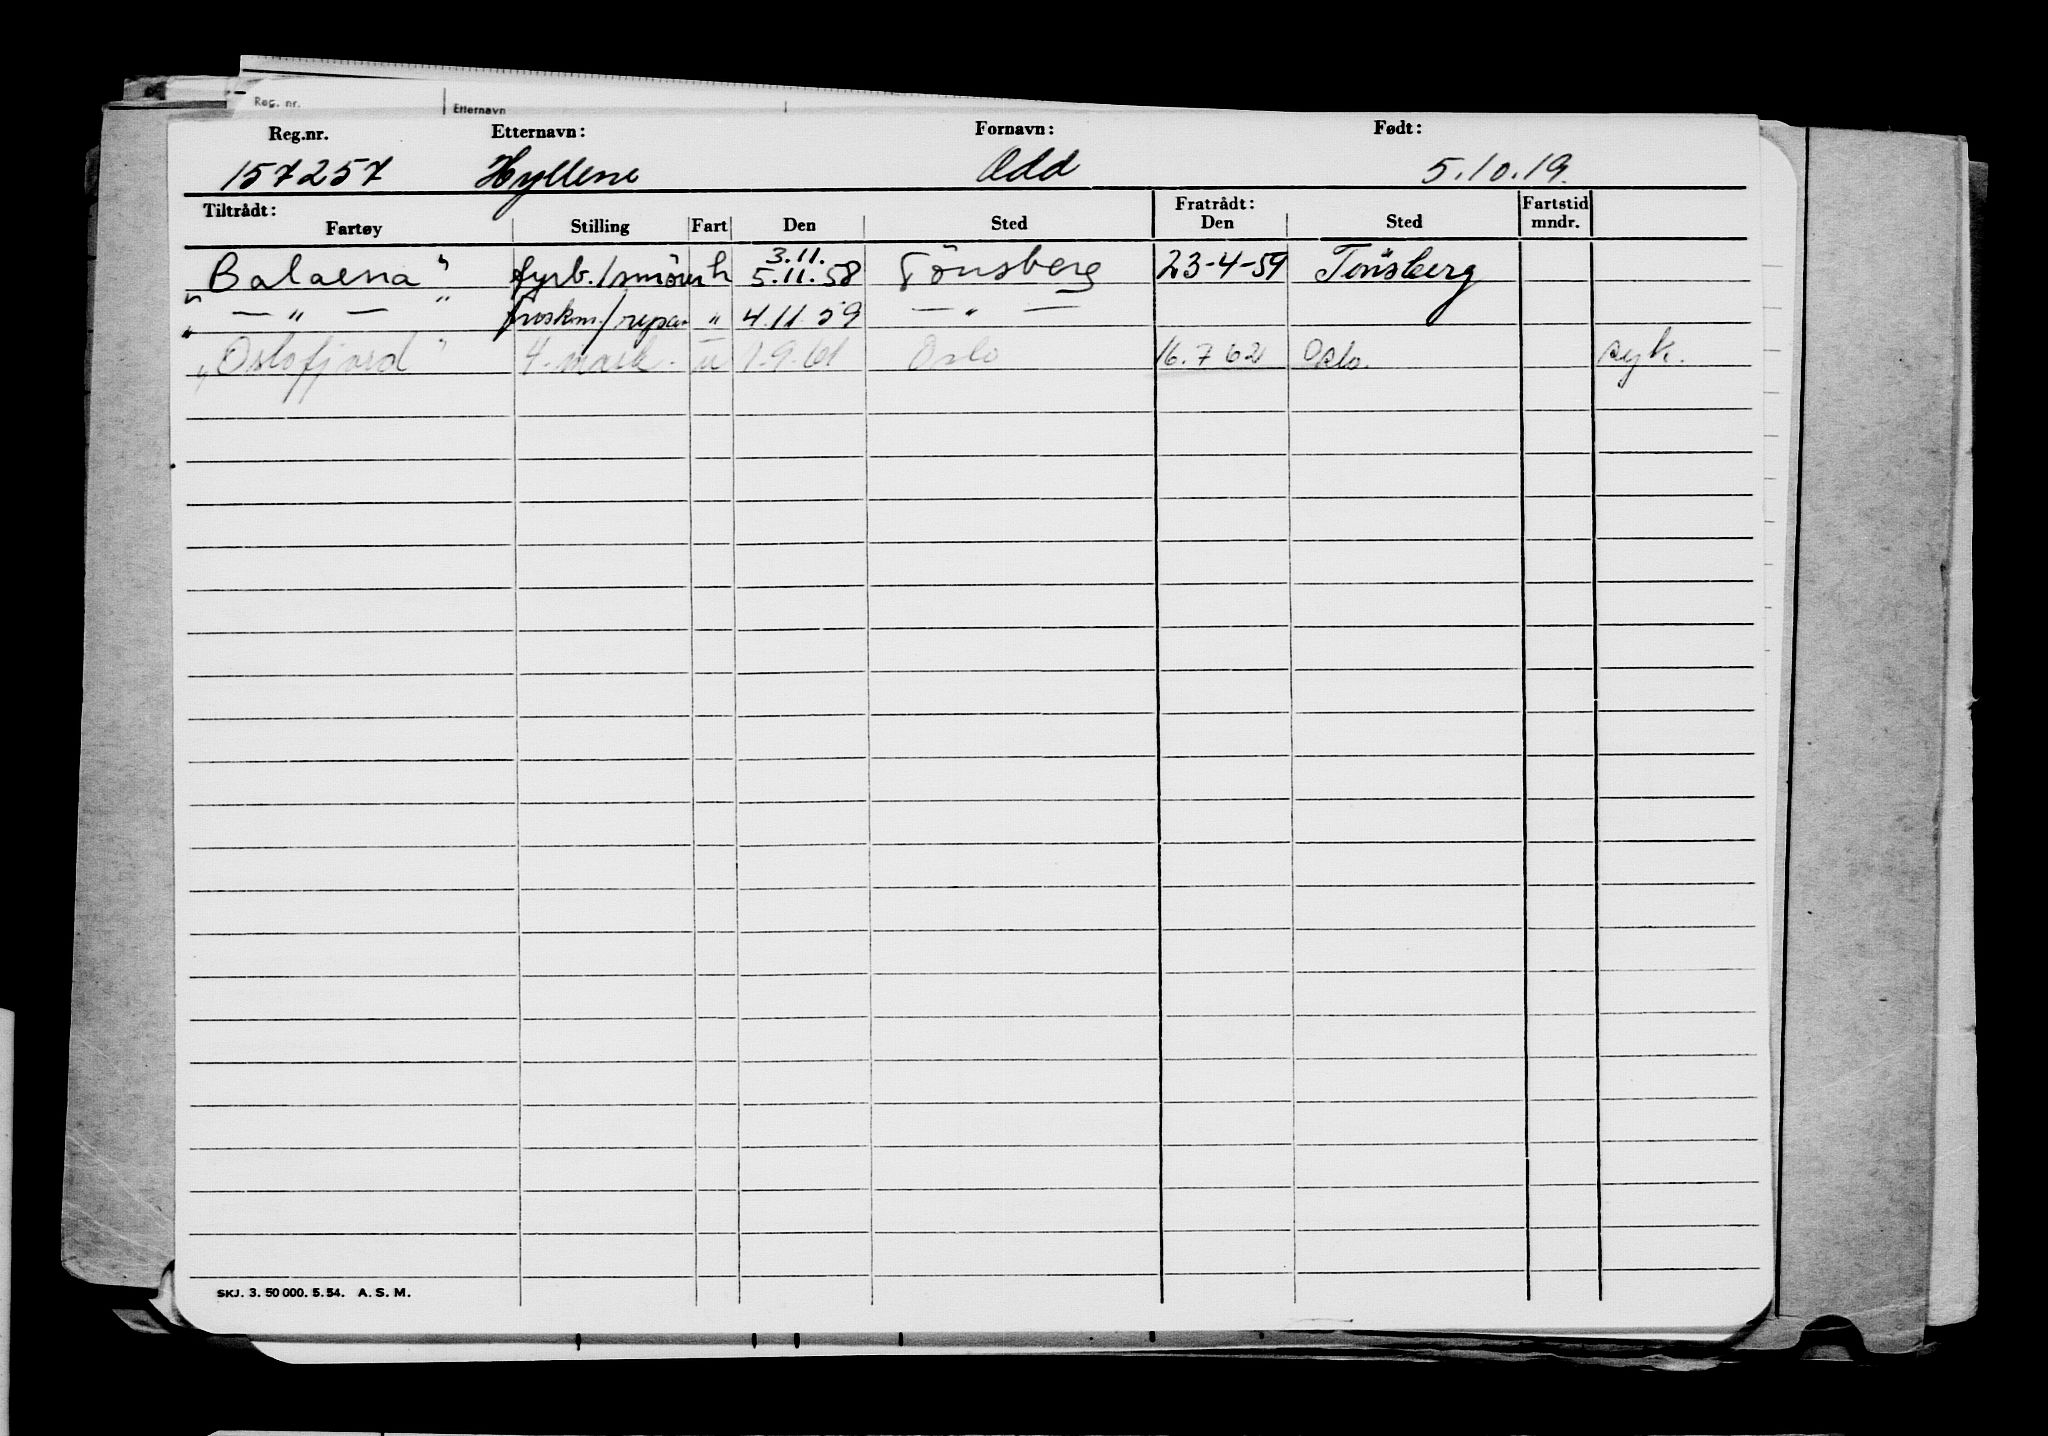 Reg. nr. Etternavn
Reg.nr. Etternavn: Fornavn: Født:
157257 Hyllene Odd 5.10.19.
Tiltrådt: Fratrådt: Fartstid
Fartøy Stilling Fart Den Sted Den Sted mndr.
3.11.
"Balaena" fyrb./smører h 5.11.58 Tønsberg 23-4-59 Tønsberg
"—"—" froskm./repar " 4.11.59 —"—
"Oslofjord" 4. mask. u 1.9.61 Oslo 16.7.62 Oslo. syk.
SKJ. 3. 50 000. 5. 54. A. S. M.